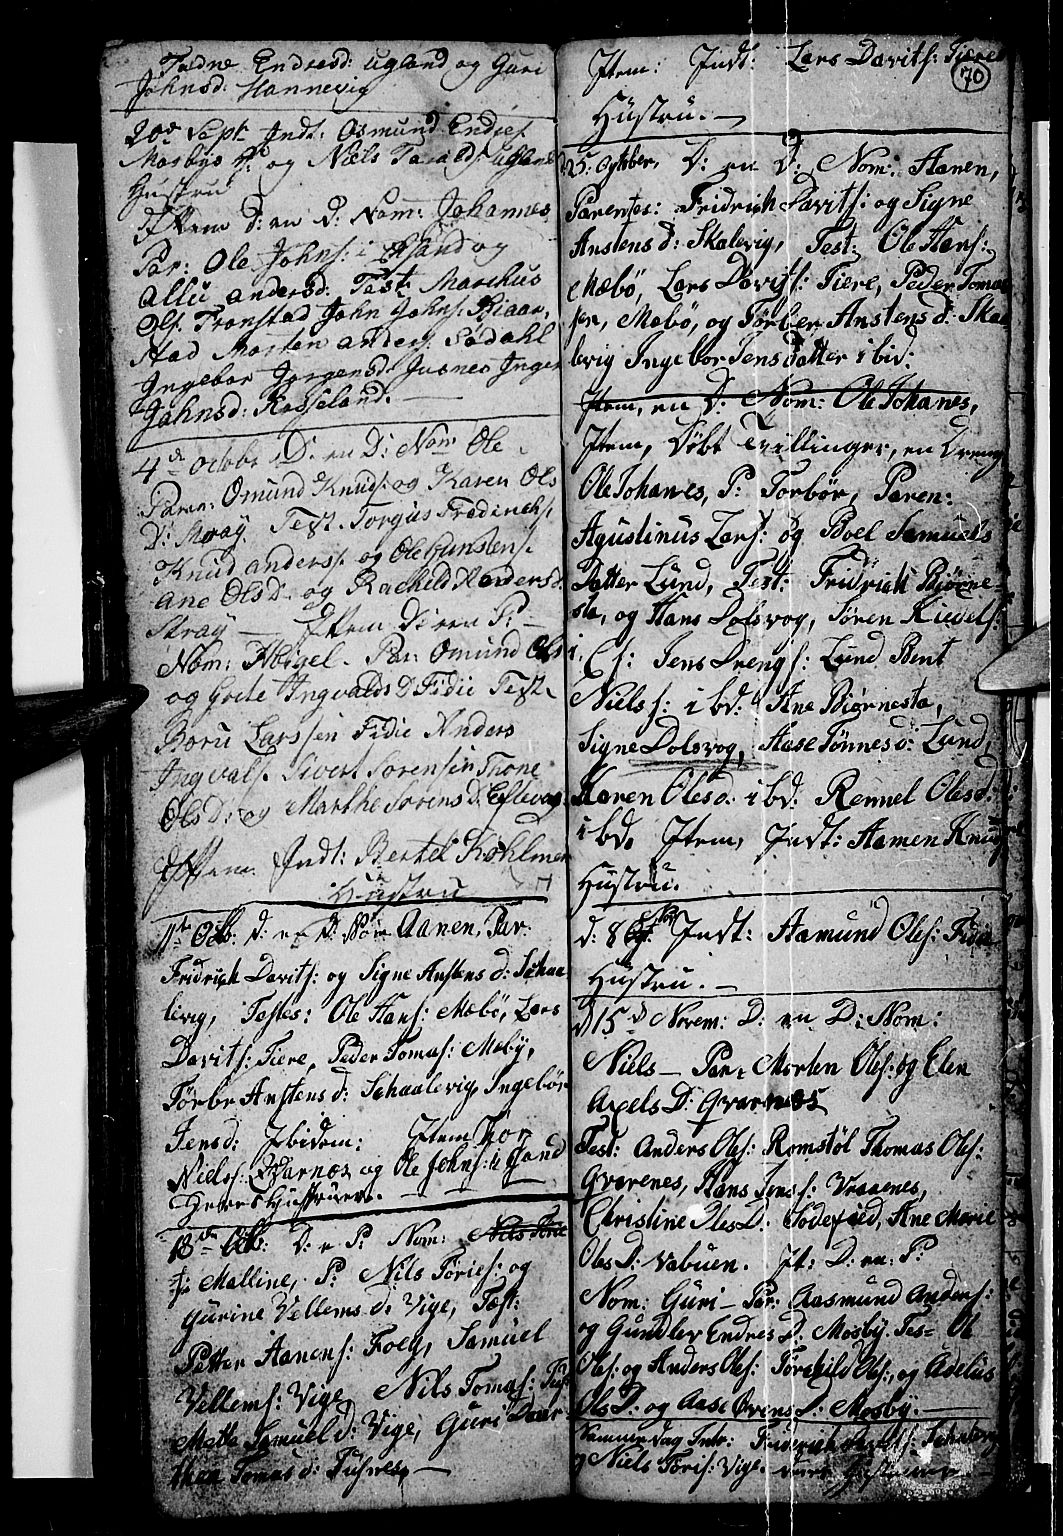 Tadne Endresd: ugland og Guri
Johnsd: Hannevig
20de Sept. Indt: Osmund Endres
Mosbys H: og Niels Tarald: uglands
Hustru
Item D: en D: Nom: Johannes
Par: Ole Johns: i Øsand og
Allu Andersd: Test: Marchus
Ols: Tronstad John Johns: Biaar
stad Morten Anders: Sødahl
Ingebor Jorgensd: Jusnes Inger
Johnsd: Kosseland.
4de octobr D: en D: Nom: Ole
Paren: Omund Knuds: og Karen Ols
D: Stray Test. Torgus Fredrichs:
Knud anderss: og Ole Gunstens:
ane OlsD: og Rachild Andersd:
Stray — Item D: een P: —
Nom: Abigel. Par: Omund Ols:
og Goite Ingvalds D: Fidie Test:
Boru Larssen Fidie Anders
Ingvals: Sivert Sorensen Thone
OlsD: og Marthe Sorens D: Eftevog
Item Indt: Bertel Kohlmen
Hustru
11te Octb: D: en D: Nom Aanen, Par:
Fridrich Davits: og Signe Anstens d: Schaa
levig, Testes: Ole Hans: Mebø, Lars
Davits: Tiere, Peder Tomas: Møby,
Tørbr Anstens d: Schaalevig, Ingebør
Jensd: Ibidem: Item Thor
Niels: Qvarnes og Ole Johns: i Sand
Deres Hustruer.
18de Octb: D: e P: Nom: Nils Torie
Malline, P: Nils Tøries: og
Gurine Vellems d: Vige, Test:
Petter Aanens: Foeg, Samuel
Vellems: Vige, Nils Tomas:
Mette Samuel d: Vige, Guri
Tomas d: Tusnes, —
Item: Indt: Lars Davits: Tieres
70
Hustru. —
25: Octber, D: en D: Nom: Aanen,
Parentes: Fridrich Davits: og Signe
Anstens d: Skalevig, Test: Ole Hans:
Mæbø, Lars Davits: Tiere, Peder Tomas
sen, Mæbø, og Tørber Anstens d: Skaa
levig Ingebor Jens datter ibid:
Item, en D: Nom: Ole Johanes,
Item, Døbt Tvillinger, en Dreng
Ole Johanes, P: Torbør, Paren:
Agustinus Lars: og Boel Samuels
Datter Lund, Test: Fridrich Biørne
sta, og Hans Dolsvog, Søren Kieels:
Jens Drengs: Lund Bent
Niels s: ibd: Ane Biørnesta,
Signe Dolsvog, Aase Tønnesd: Lund,
Karen Olesd: ibd: Rennel Olesd:
ibd. Item, Indt: Aamen Knuds
Hustru.
d: 8 Nov: Indt: Aamund Oles: Fidie
Hustru. —
d 15d Novem: D: en D: Nom:
Niels — Par: Morten Ols: og Elen
Axels D: Qvarnes
Test: Anders Ols: Romstøl Thomas Ols:
Qvarenes, Hans Jenss: Vraaenes,
Christine OlesD: Todefied, Ane Marie
OlesD: Vabuen. It: D: en: P:
Nom: Guri — Par: Aasmund Anders:
og Gundlev Endres D: Mosby. Tes= Ole
Ols: og Anders Ols: Torchild Ols:, og Adelus
OlsD: og Aase Øvens D: Mosby. —
Samme Dag Intr: Friderich Davits:
og Niels Toris: Vige.